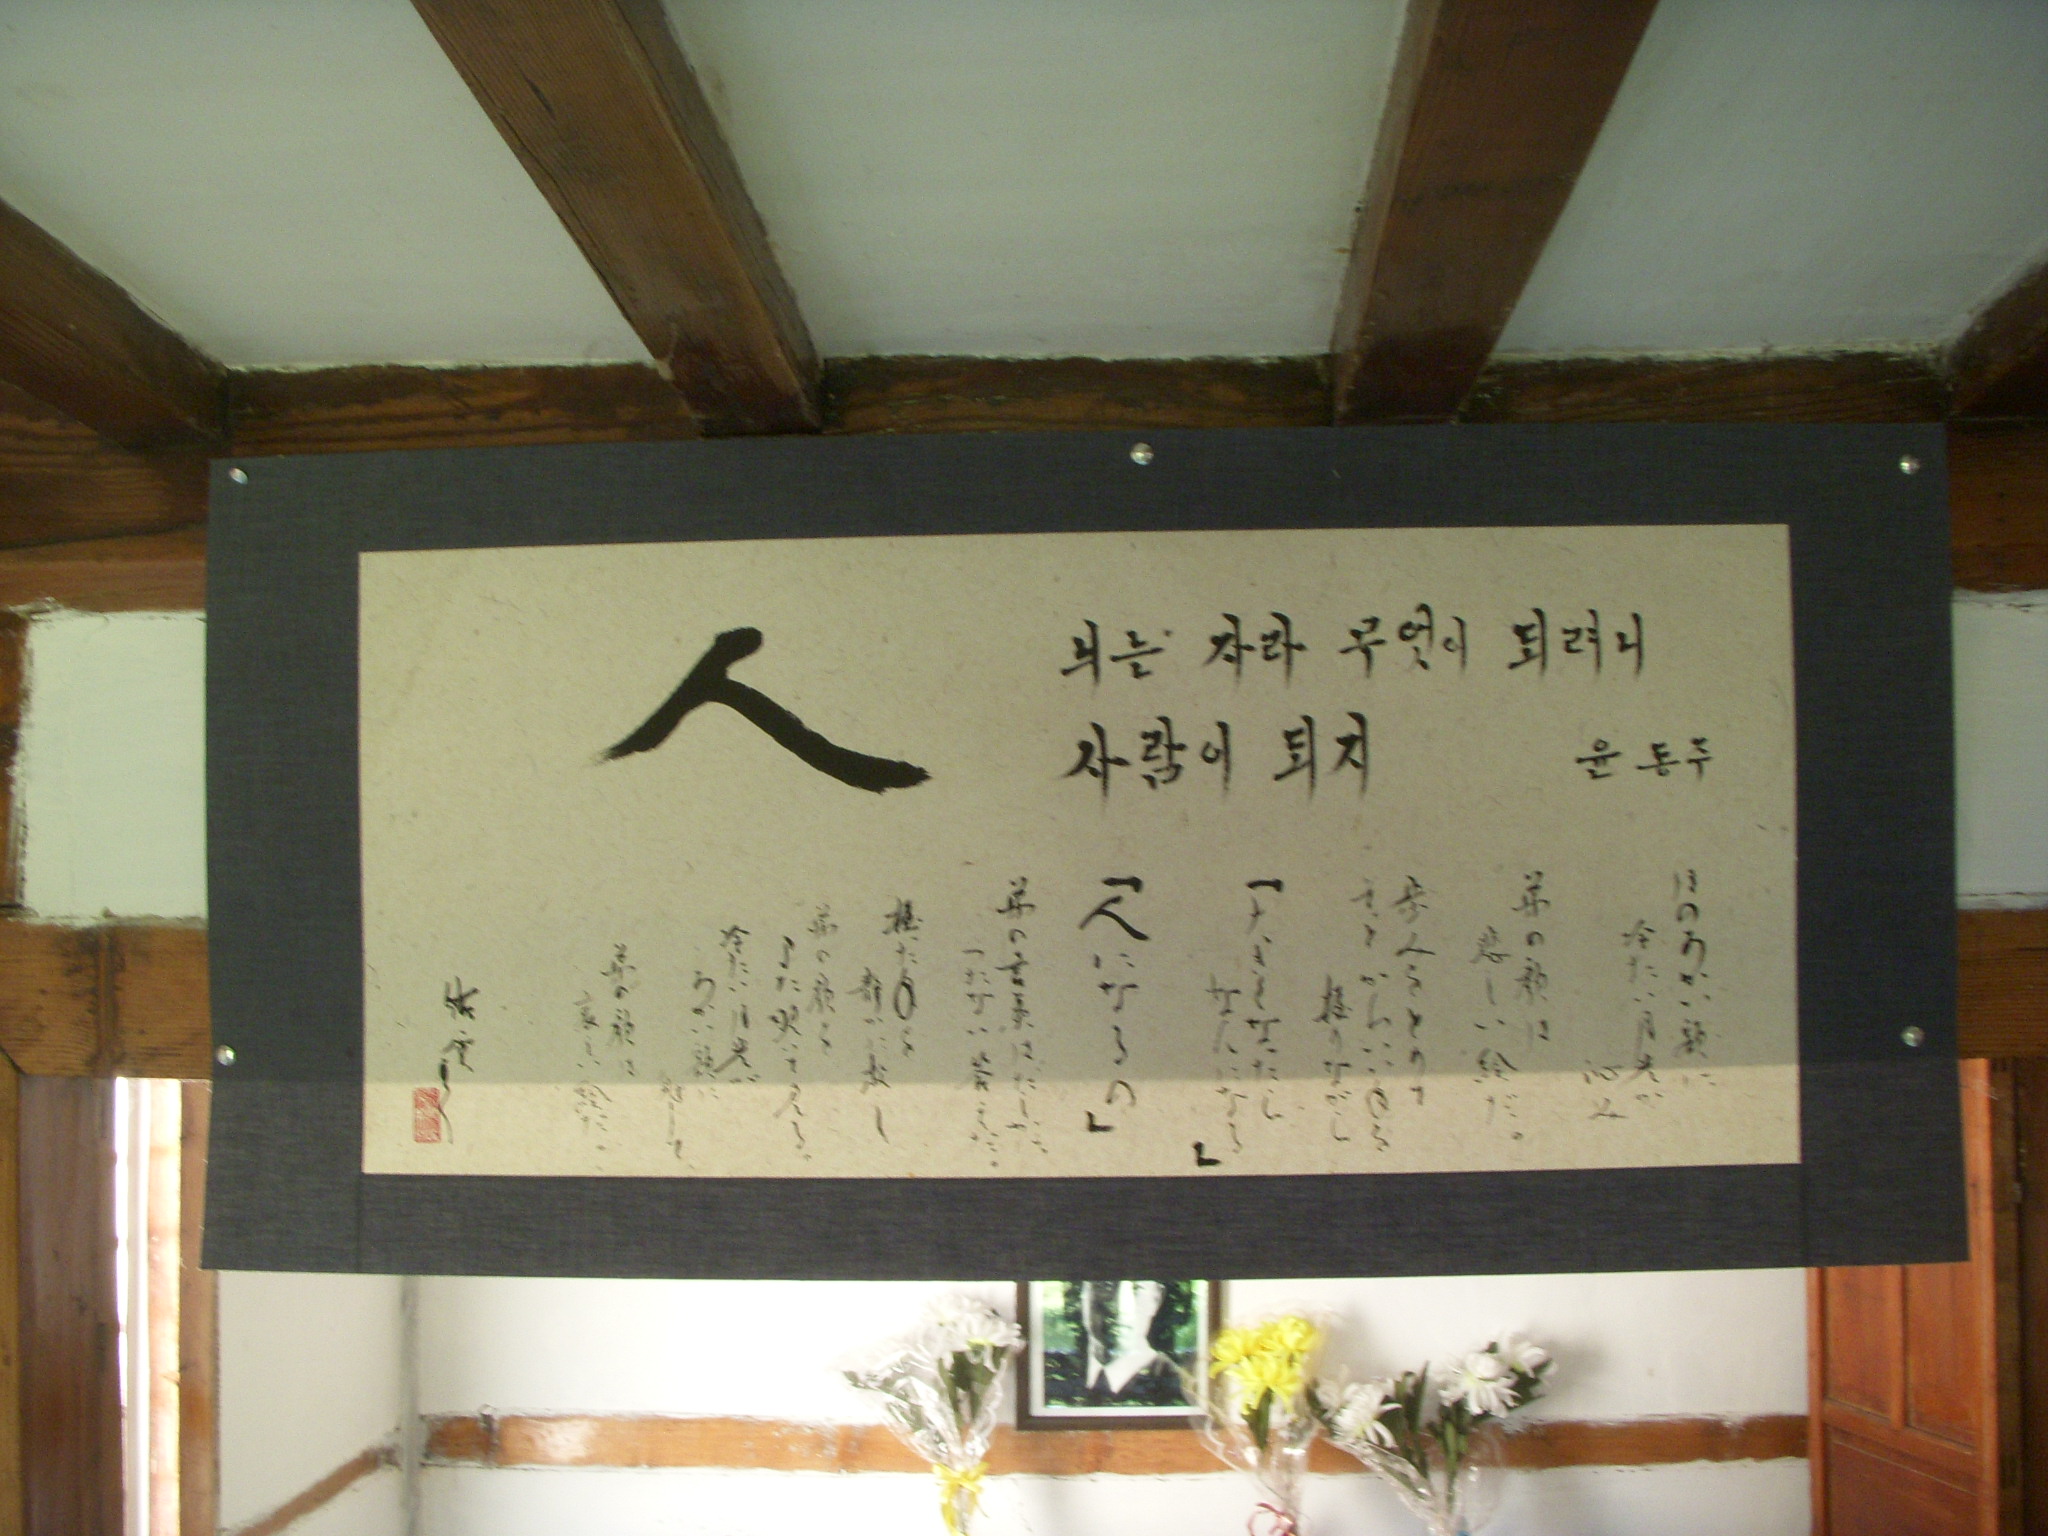 늬는 자라 무엇이 되려니
사람이 되지
윤동주
人
ほのあかい額に
冷たい月光が
沁み
弟の顔は
悲しい絵だ。
歩みをとめて
そっとかわいい手を
握りながら
「大きくなったら
なんになる」
「人になるの」
弟の言葉はたしかに、
つたない答えだ。
握った手を
静かに放し
弟の顔を
また覗いて見る。
冷たい月光が
あかい額に
弟の顔は
哀しい絵だ。